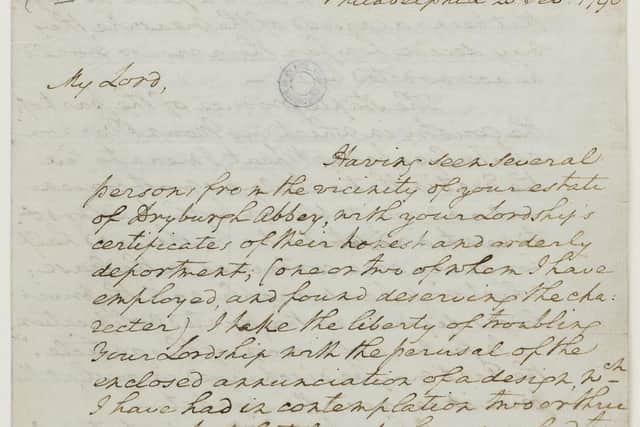 Philadelphia 20 Feb. 1796
My Lord,
Having seen several
persons from the vicinity of your estate
of Dryburgh Abbey, with your Lordship's
certificates of their honest and orderly
deportment; (one or two of whom I have
employed, and found deserving the cha-
recter) I take the liberty of troubling
Your Lordship with the perusal of the
enclosed annunciation of a design, wch
I have had in contemplation two or three